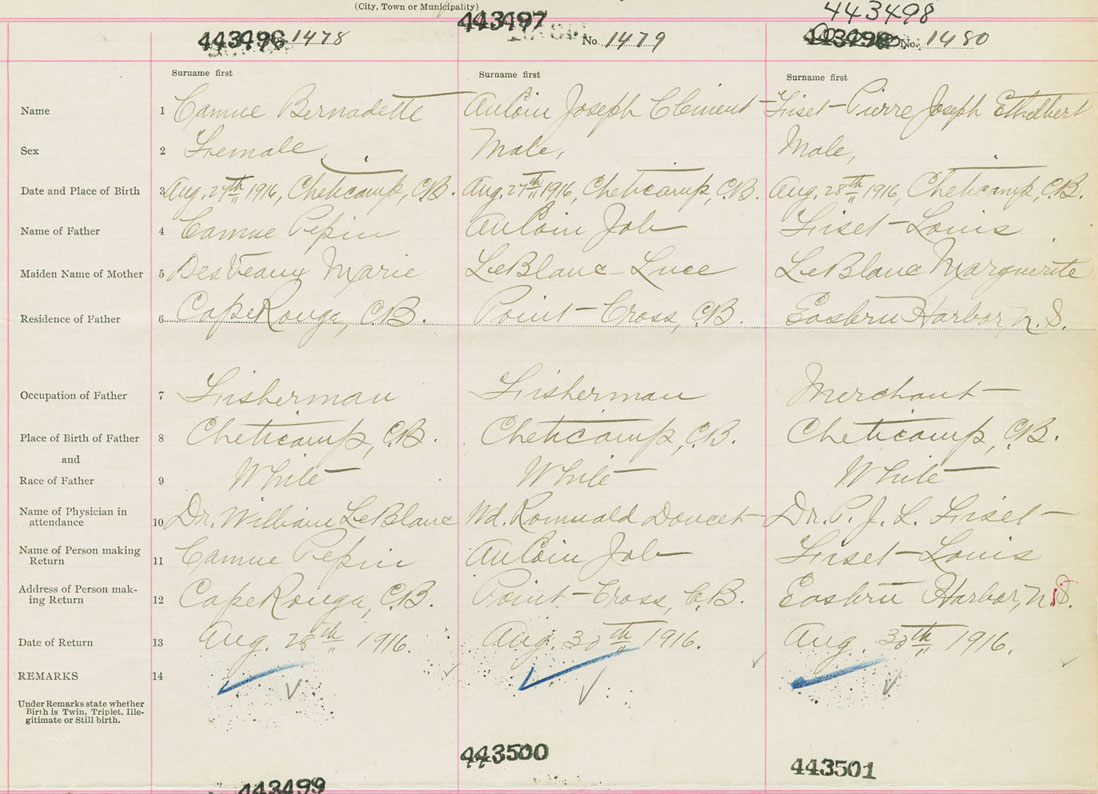 (City, Town or Municipality)
443496 1478
443497 No. 1479
443498
443498 No. 1480
Surname first Surname first Surname first
Name 1 Camue Bernadette AuCoin Joseph Clement Fiset-Pierre Joseph Ethelbert
Sex 2 Female Male, Male,
Date and Place of Birth 3 Aug. 27th 1916, Cheticamp, C.B. Aug. 27th 1916, Cheticamp, C.B. Aug. 28th 1916, Cheticamp, C.B.
Name of Father 4 Camue Pepin AuCoin Job Fiset-Louis
Maiden Name of Mother 5 DesVeaux Marie LeBlanc-Luce LeBlanc Marguerite
Residence of Father 6 Cape Rouge, C.B. Point-Cross, C.B. Eastern Harbor, N.S.
Occupation of Father 7 Fisherman Fisherman Merchant
Place of Birth of Father 8 Cheticamp, C.B. Cheticamp, C.B. Cheticamp, C.B.
and
Race of Father 9 White White White
Name of Physician in
attendance 10 Dr. William LeBlanc Wd. Romuald Doucet Dr. P. J. L. Fiset
Name of Person making
Return 11 Camue Pepin AuCoin Job Fiset-Louis
Address of Person mak-
ing Return 12 Cape Rouge, C.B. Point-Cross, C.B. Eastern Harbor, N.S.
Date of Return 13 Aug. 28th 1916. Aug. 30th 1916. Aug. 30th 1916.
REMARKS 14
Under Remarks state whether
Birth is Twin, Triplet, Ille-
gitimate or Still birth.
443499 443500 443501